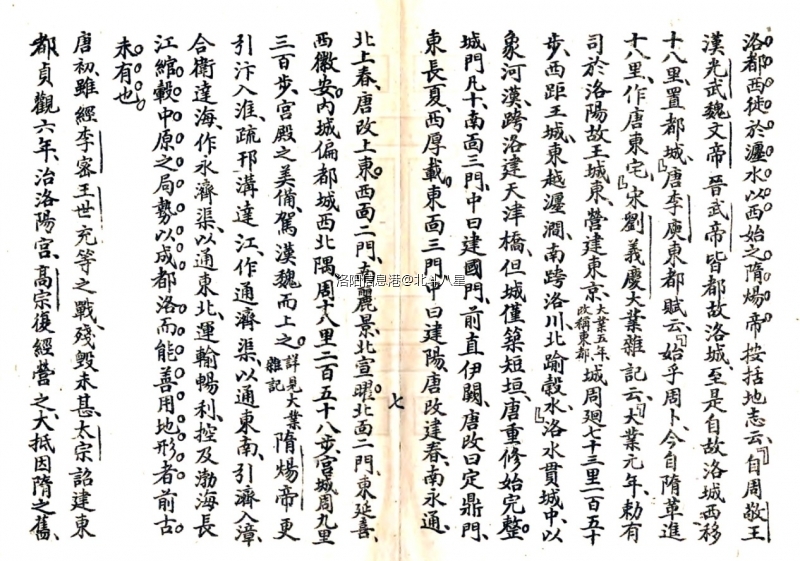 洛都西徙於瀍水以西始之隋煬帝按括地志云『自周敬王
漢光武魏文帝晉武帝皆都故洛城至是自故洛城西移
十八里置都城』唐李庾東都賦云『始乎周卜今自隋革進
十八里作唐東宅』宋劉義慶大業雜記云『大業元年勅有
司於洛陽故王城東營建東京大業五年改稱東都城周迴七十三里一百五十
步西距王城東越瀍澗南跨洛川北踰穀水』洛水貫城中以
象河漢跨洛建天津橋但城僅築短垣唐重修始完整
城門凡十南面三門中曰建國門前直伊闕唐改曰定鼎門
東長夏西厚載東面三門中曰建陽唐改建春南永通
七
北上春唐改上東西面二門南麗景北宣曜北面二門東延喜
西徽安內城偏都城西北隅周十八里二百五十八步宮城周九里
三百步宮殿之美備駕漢魏而上之詳見大業雜記隋煬帝更
引汴入淮疏邗溝達江作通濟渠以通東南引濟入漳
合衛達海作永濟渠以通東北運輸暢利控及渤海長
江綰轂中原之局勢以成都洛而能善用地形者前古
未有也
唐初雖經李密王世充等之戰殘毀未甚太宗詔建東
都貞觀六年治洛陽宮高宗復經營之大抵因隋之舊
洛阳信息港@北斗八星